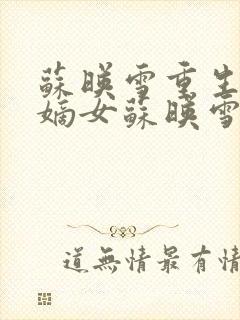 蘇暎雪重生
嫡女蘇暎雪
道無情最有情